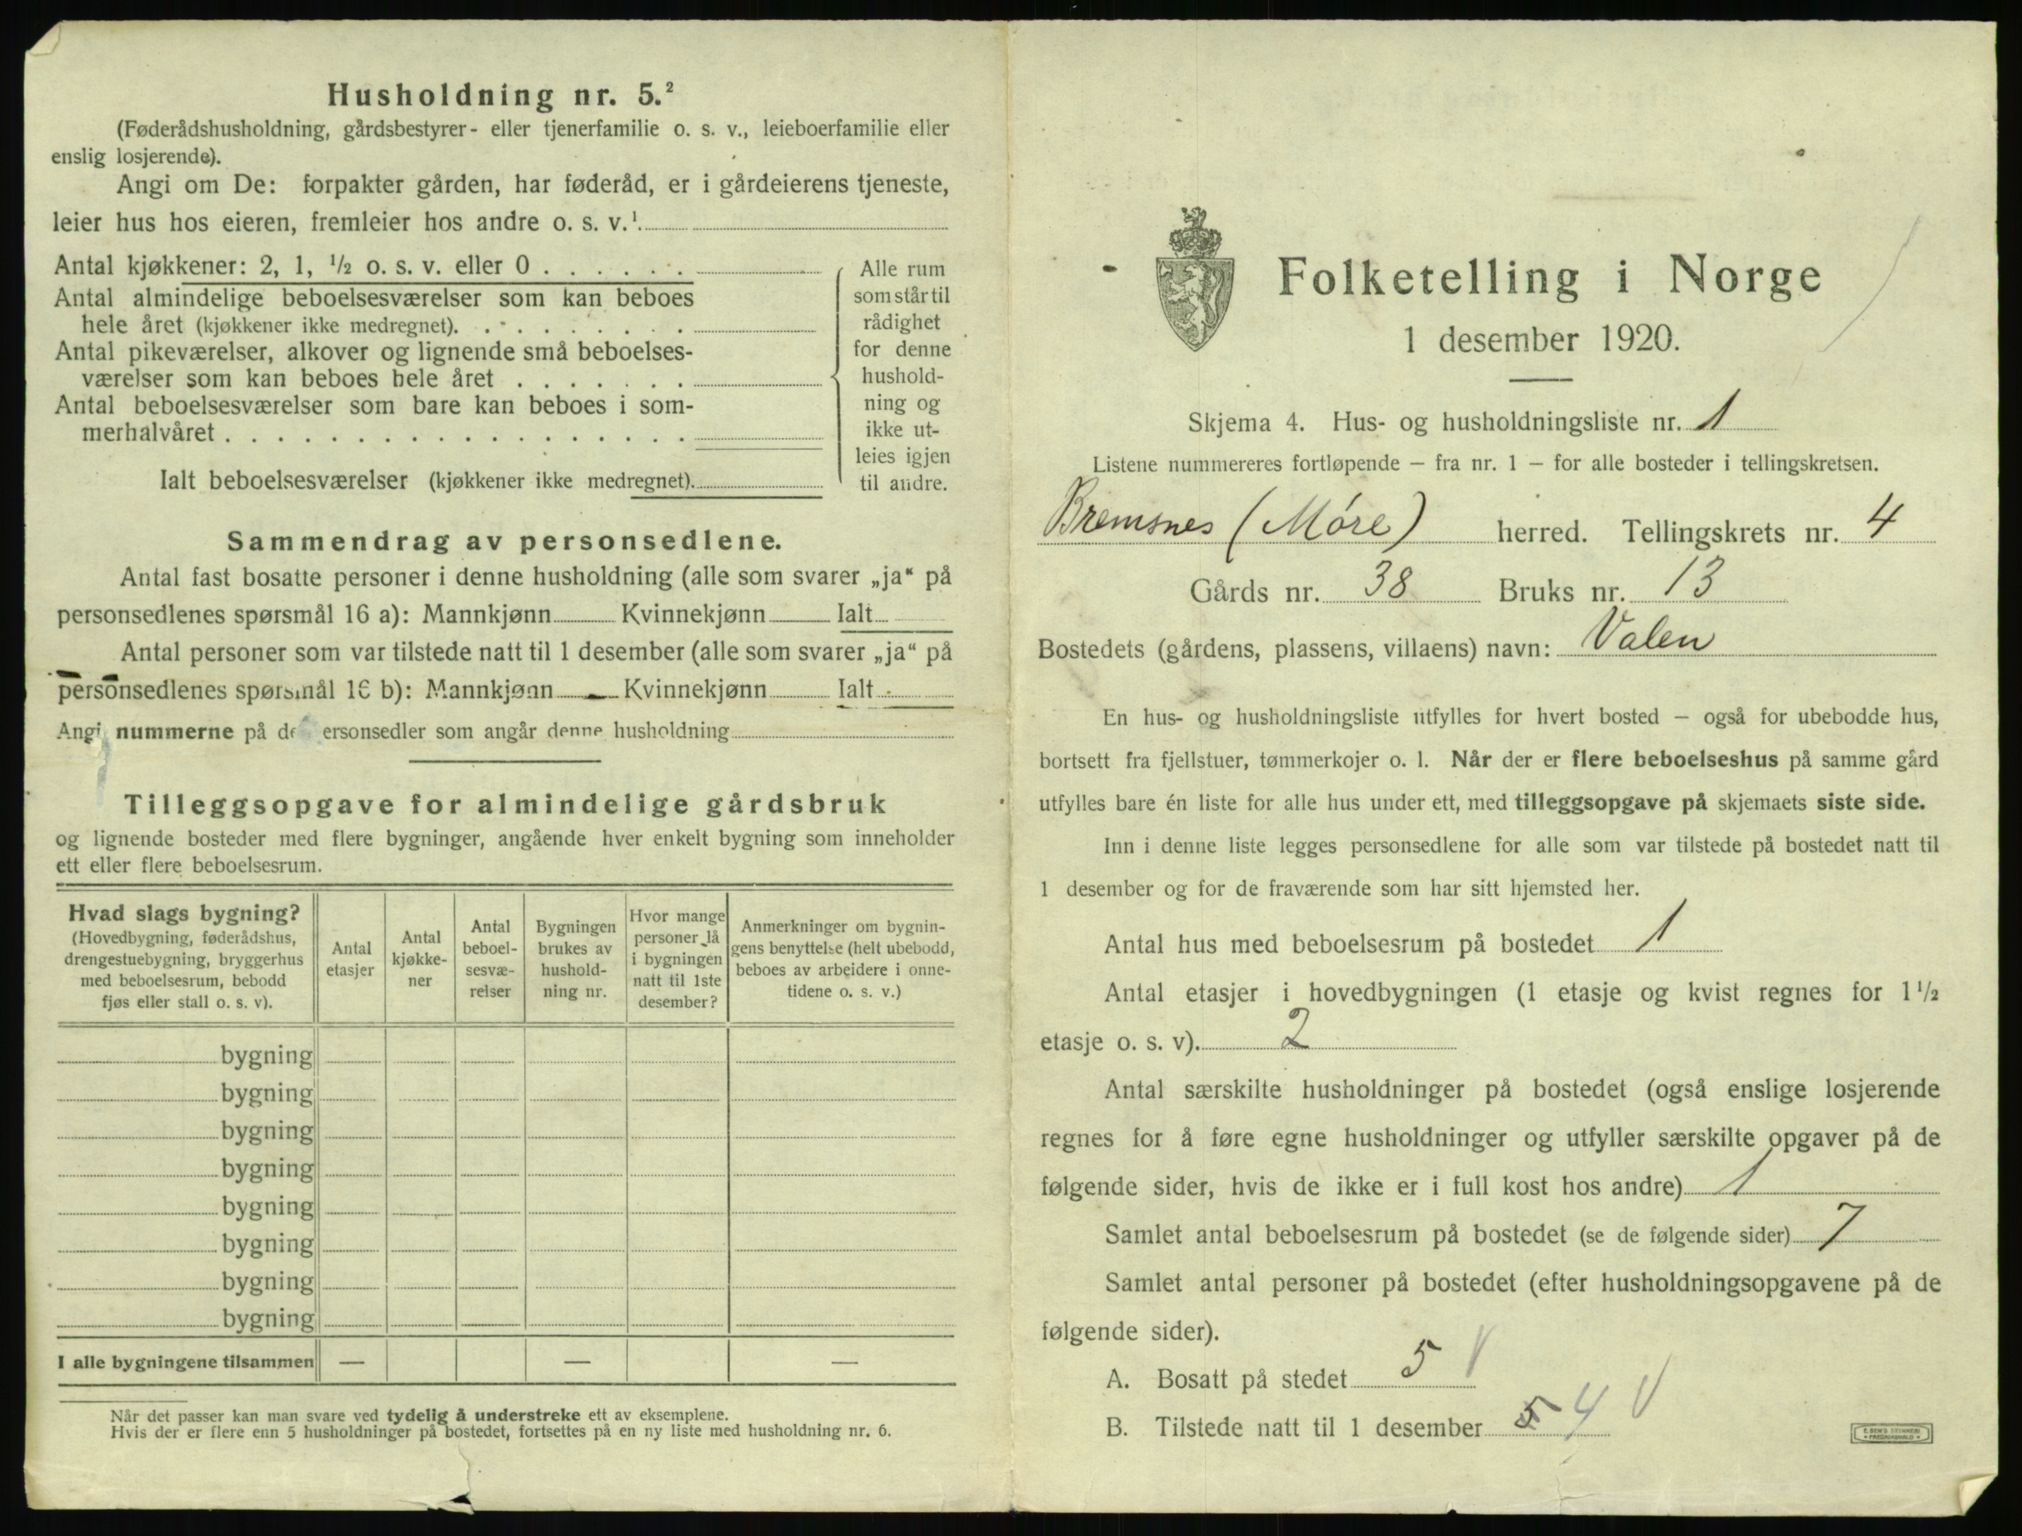 Husholdning nr. 5.²
(Føderådshusholdning, gårdsbestyrer- eller tjenerfamilie o. s. v., leieboerfamilie eller
enslig losjerende).
Angi om De: forpakter gården, har føderåd, er i gårdeierens tjeneste,
leier hus hos eieren, fremleier hos andre o. s. v.¹
Antal kjøkkener: 2, 1, ½ o. s. v. eller 0 . . . . . .
Antal almindelige beboelsesværelser som kan beboes
hele året (kjøkkener ikke medregnet). . . . . . . . .
Antal pikeværelser, alkover og lignende små beboelses-
værelser som kan beboes hele året . . . . . . .
Antal beboelsesværelser som bare kan beboes i som-
merhalvåret . . . . . . . . . . . . . . . . . .
Ialt beboelsesværelser (kjøkkener ikke medregnet).
Alle rum
som står til
rådighet
for denne
hushold-
ning og
ikke ut-
leies igjen
til andre.
Sammendrag av personsedlene.
Antal fast bosatte personer i denne husholdning (alle som svarer „ja“ på
personsedlenes spørsmål 16 a): Mannkjønn Kvinnekjønn Ialt
Antal personer som var tilstede natt til 1 desember (alle som svarer „ja“ på
personsedlenes spørsmål 16 b): Mannkjønn Kvinnekjønn Ialt
Angi nummerne på de ersonsedler som angår denne husholdning
Tilleggsopgave for almindelige gårdsbruk
og lignende bosteder med flere bygninger, angående hver enkelt bygning som inneholder
ett eller flere beboelsesrum.
Hvad slags bygning?
(Hovedbygning, føderådshus,
drengestuebygning, bryggerhus
med beboelsesrum, bebodd
fjøs eller stall o. s. v).
Antal
etasjer
Antal
kjøkke-
ner
Antal
beboel-
sesvæ-
relser
Bygningen
brukes av
hushold-
ning nr.
Hvor mange
personer lå
i bygningen
natt til 1ste
desember?
Anmerkninger om bygnin-
gens benyttelse (helt ubebodd,
beboes av arbeidere i onne-
tidene o. s. v.)
bygning
bygning
bygning
bygning
bygning
bygning
bygning
bygning
I alle bygningene tilsammen — — —
Når det passer kan man svare ved tydelig å understreke ett av eksemplene.
Hvis der er flere enn 5 husholdninger på bostedet, fortsettes på en ny liste med husholdning nr. 6.
Folketelling i Norge
1 desember 1920.
Skjema 4. Hus- og husholdningsliste nr. 1
Listene nummereres fortløpende – fra nr. 1 – for alle bosteder i tellingskretsen.
Bremsnes (Møre) herred. Tellingskrets nr. 4
Gårds nr. 38 Bruks nr. 13
Bostedets (gårdens, plassens, villaens) navn: Valen
En hus- og husholdningsliste utfylles for hvert bosted – også for ubebodde hus,
bortsett fra fjellstuer, tømmerkojer o. l. Når der er flere beboelseshus på samme gård
utfylles bare én liste for alle hus under ett, med tilleggsopgave på skjemaets siste side.
Inn i denne liste legges personsedlene for alle som var tilstede på bostedet natt til
1 desember og for de fraværende som har sitt hjemsted her.
Antal hus med beboelsesrum på bostedet 1
Antal etasjer i hovedbygningen (1 etasje og kvist regnes for 1½
etasje o. s. v). 2
Antal særskilte husholdninger på bostedet (også enslige losjerende
regnes for å føre egne husholdninger og utfyller særskilte opgaver på de
følgende sider, hvis de ikke er i full kost hos andre) 1
Samlet antal beboelsesrum på bostedet (se de følgende sider) 7
Samlet antal personer på bostedet (efter husholdningsopgavene på de
følgende sider).
A. Bosatt på stedet 5 V
B. Tilstede natt til 1 desember 5 4 V